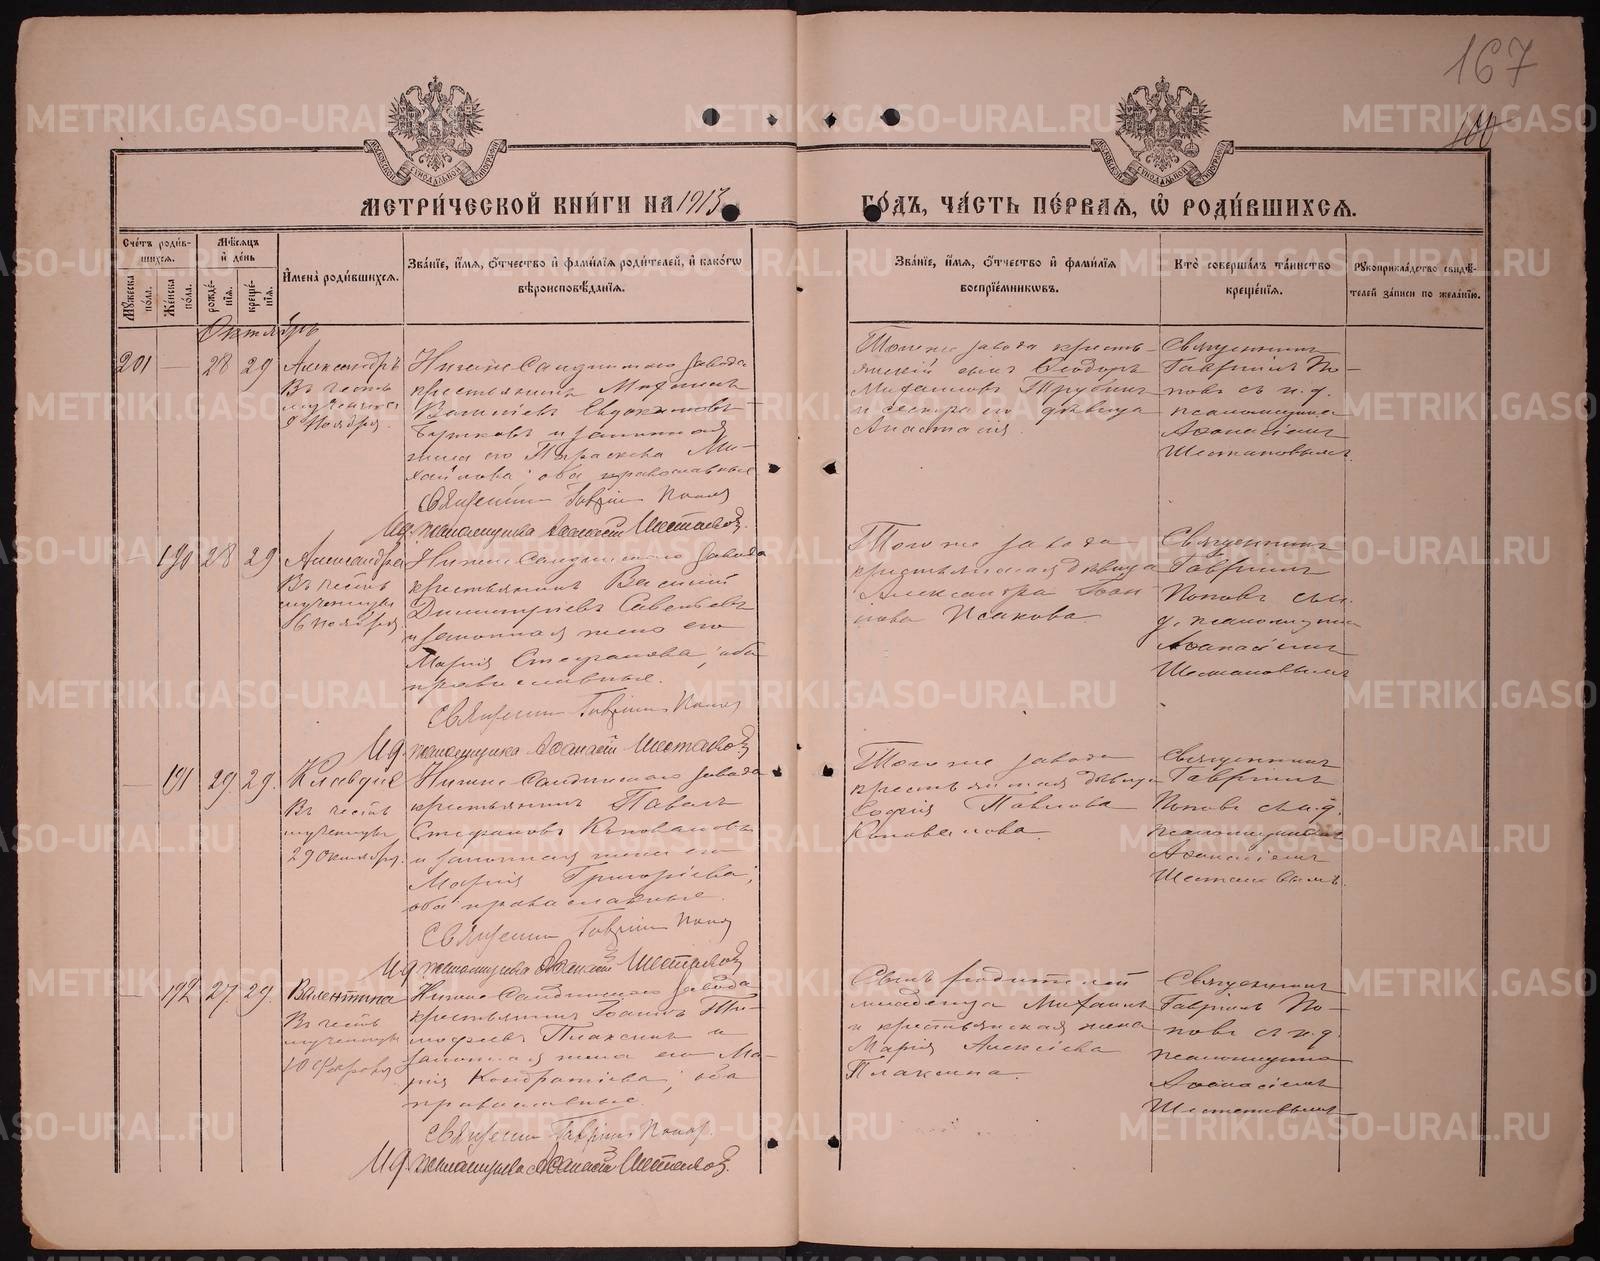 167
100
МЕТРИЧЕСКОЙ КНИГИ НА 1913
ГОДЪ, ЧАСТЬ ПЕРВАЯ, Ѡ РОДИВШИХСЯ.
Счетъ родив-
шихся.
Мѣсяцъ
и день
Мужеска
пола.
Женска
пола.
рожде-
нія.
креще-
нія.
Имена родившихся.
Званіе, имя, отчество и фамилія родителей, и какогѡ
вѣроисповѣданія.
Званіе, имя, отчество и фамилія
воспріемниковъ.
Кто совершалъ таинство
крещенія.
Рукоприкладство свидѣ-
телей записи по желанію.
Октябрь
201 — 28 29 Александръ
Въ честь
мученика
9 Ноября
Нижне-Салдинского завода
крестьянинъ
Евдокимовъ
и законная
жена его Параскева Ми-
хайлова; оба православные
Священникъ Гавріилъ Поповъ
И.д. псаломщика Аѳанасій Шестаковъ
Того же завода кресть-
янскій сынъ Ѳеодоръ
Трубинъ
и сестра его дѣвица
Анастасія.
Священникъ
Гавріилъ По-
повъ съ и.д.
псаломщика
Аѳанасіемъ
Шестаковымъ.
— 190 28 29 Александра
Въ честь
мученицы
6 Ноября
Нижне Салдинского завода
крестьянинъ Василій
Димитріевъ Савельевъ
и законная жена его
Марія Стефанова; оба
православные.
Священникъ Гавріилъ Поповъ
И.д. псаломщика Аѳанасій Шестаковъ
Того же завода
крестьянская дѣвица
Александра Іоан
нова Исакова
Священникъ
Гавріилъ
Поповъ съ и.
д. псаломщика
Аѳанасіемъ
Шестаковымъ
— 191 29 29. Клавдія
Въ честь
мученицы
29 Октября.
Нижне-Салдинского завода
крестьянинъ Павелъ
Стефановъ Коноваловъ
и законная жена его
Марія Григорьева;
оба православные.
Священникъ Гавріилъ Поповъ
И.д. псаломщика Аѳанасій Шестаковъ
Того же завода
крестьянская дѣвица
Софія Павлова
Коновалова.
Священникъ
Гавріилъ
Поповъ съ и.д.
псаломщика
Аѳанасіемъ
Шестаковымъ.
— 192 27 29. Валентина
Въ честь
мученицы
10 Февраля
Нижне Салдинского завода
крестьянинъ Іоаннъ Ти-
моѳеевъ Плаксинъ и
законная жена его Ма-
рія Кондратіева; оба
православные.
Священникъ Гавріилъ Поповъ.
И.д. псаломщика Аѳанасій Шестаковъ.
Сынъ родителей
младенца Михаилъ
и крестьянская жена
Марія Алексіева
Плаксина.
Священникъ
Гавріилъ По-
повъ съ и.д.
псаломщика
Аѳанасіемъ
Шестаковымъ
METRIKI.GASO-URAL.RU